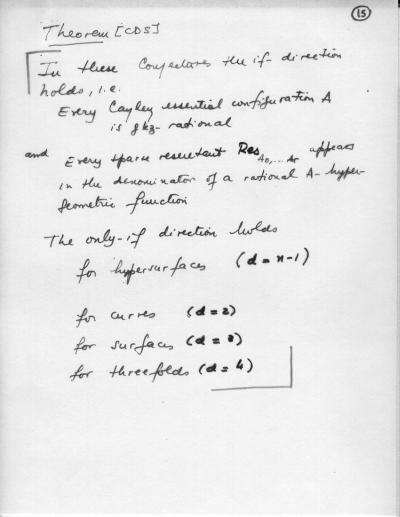 15
Theorem [CDS]
In these Conjectures the if-direction
holds, i.e.
Every Cayley essential configuration A
is gkz-rational
and Every sparse resultant Res A0,...Ar appears
in the denominator of a rational A-hyper-
geometric function
The only-if direction holds
for hypersurfaces (d = n-1)
for curves (d = 2)
for surfaces (d = 3)
for threefolds (d = 4)